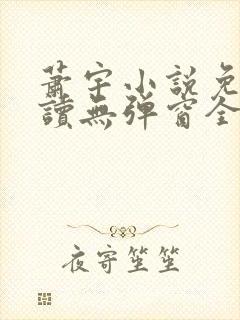 蕭宇小說免
讀無彈窗全
夜寄笙笙